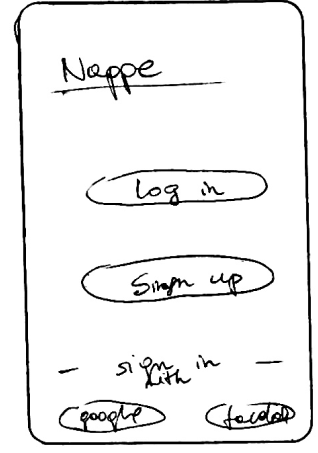 Nappe
Log in
Sign up
— sign in —
with
google